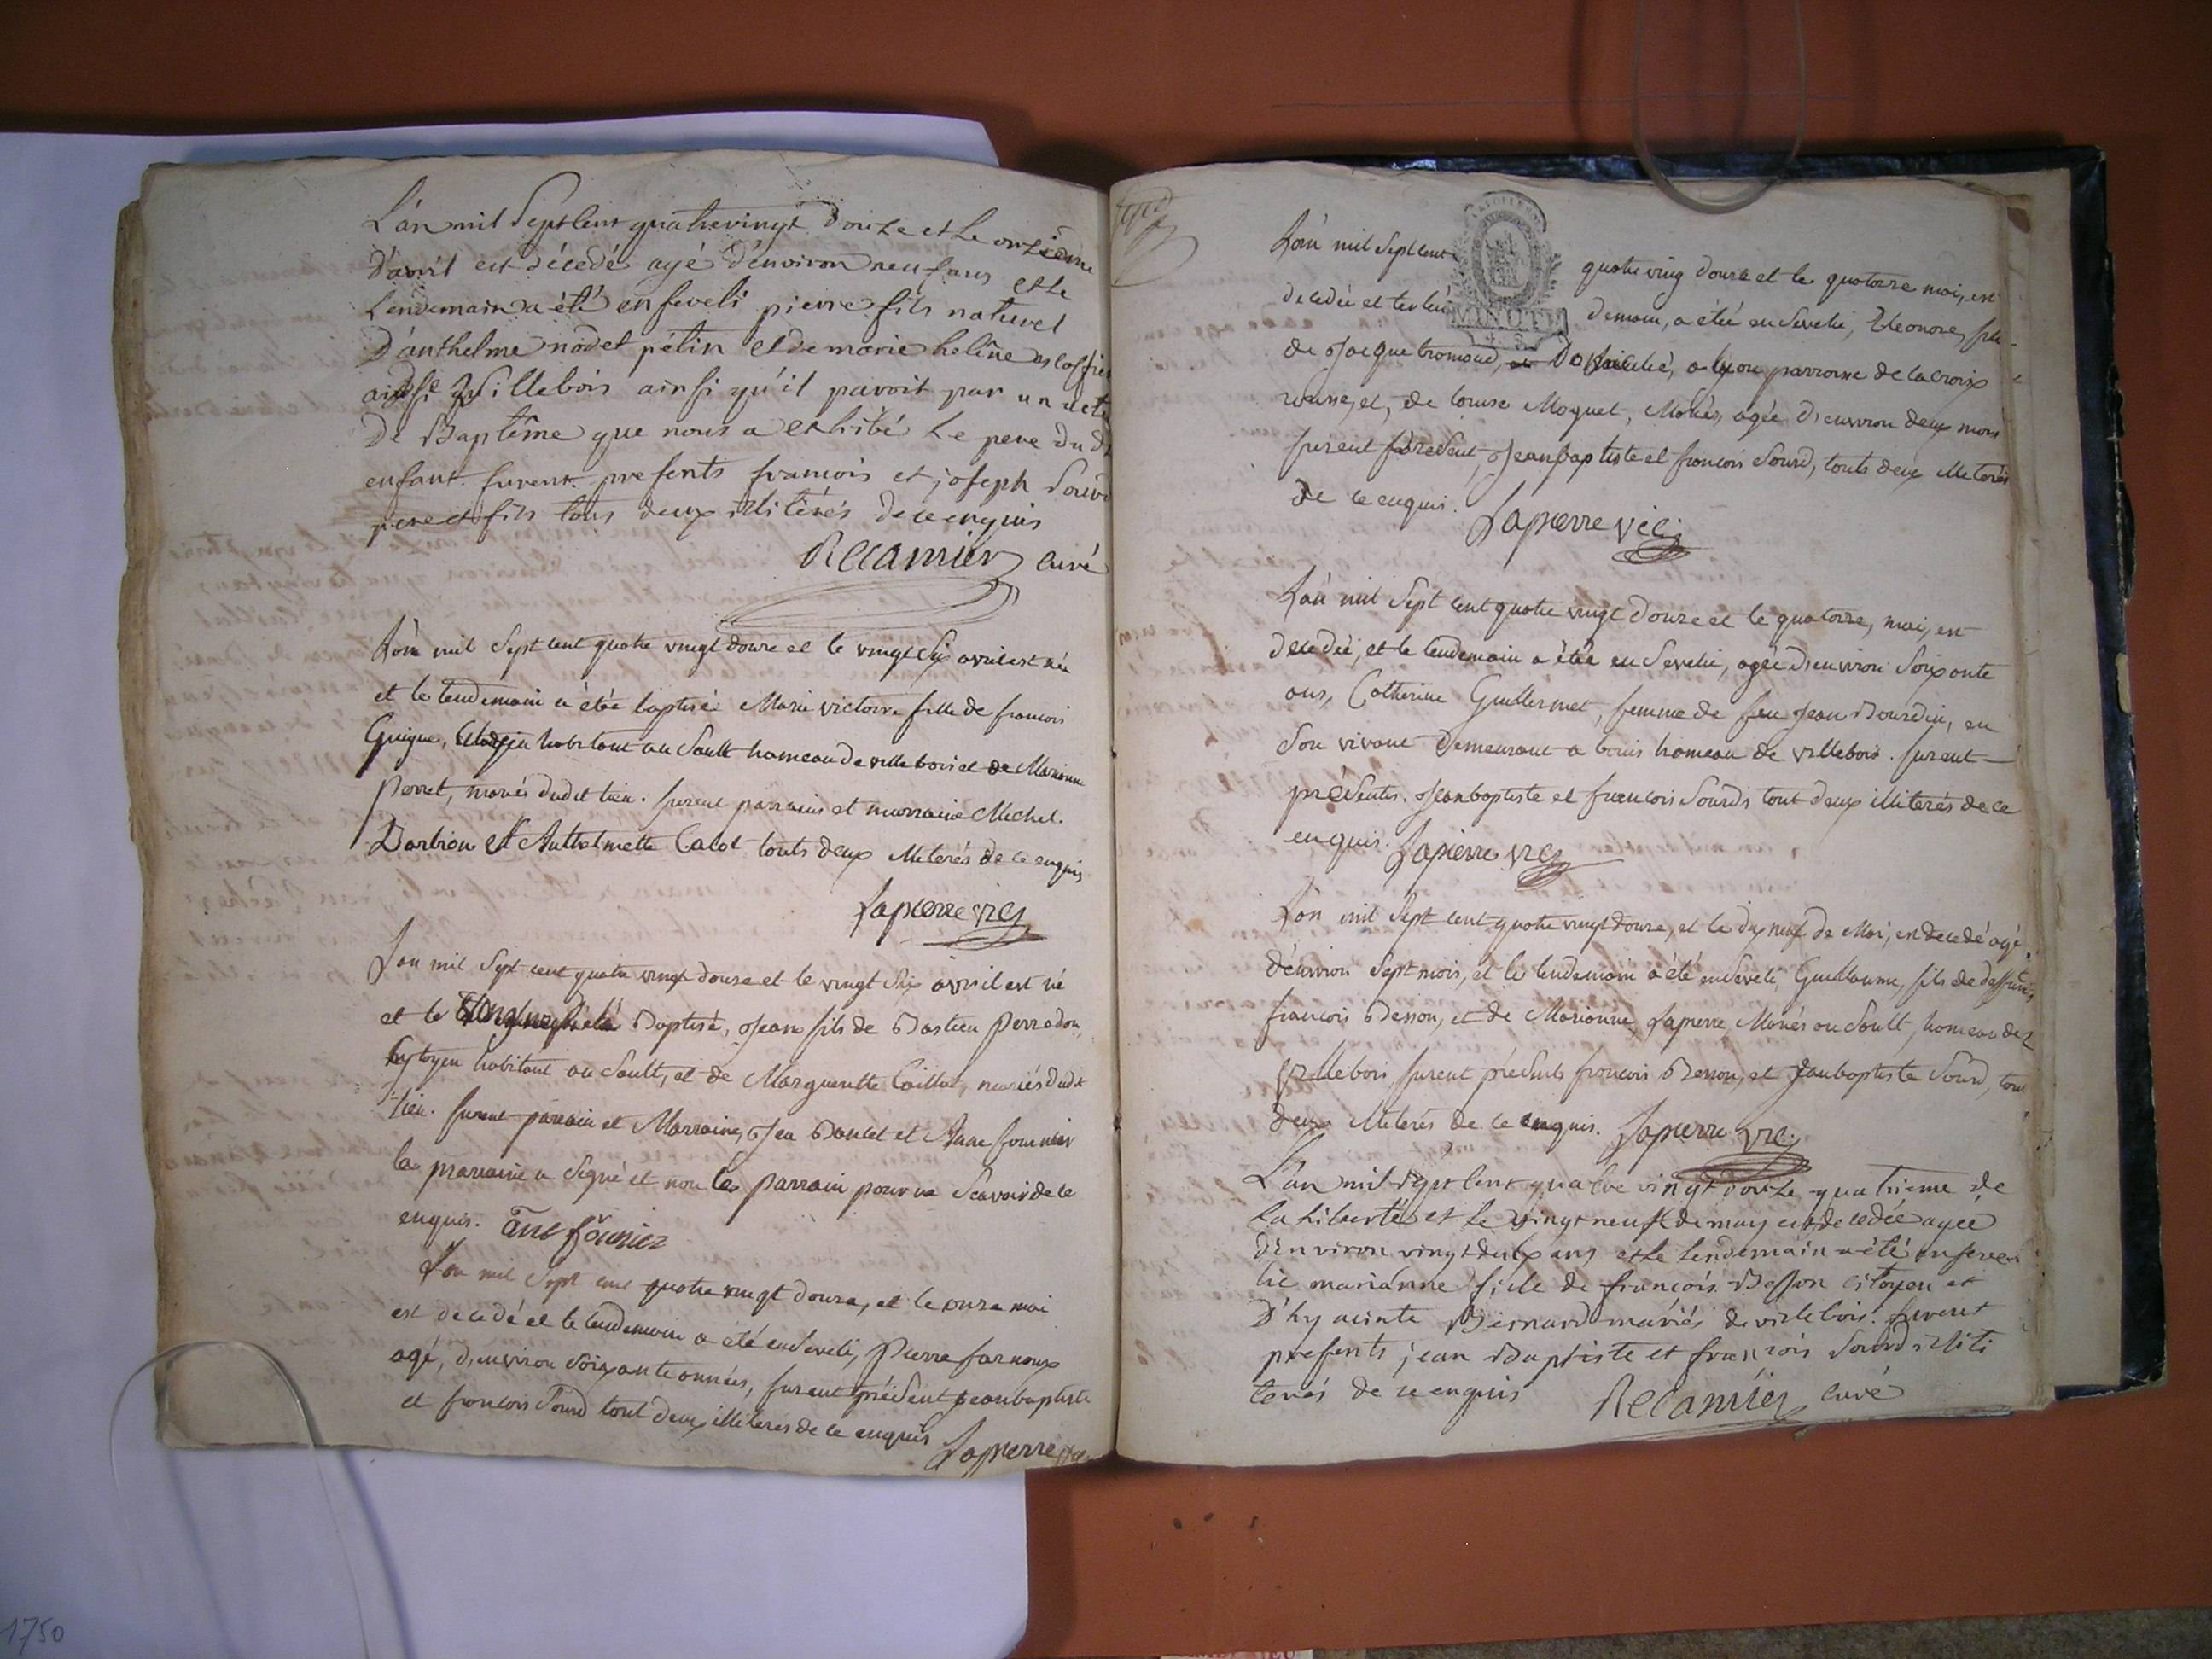 L'an mil Sept cent quatrevingt douze et le onzième
d'avril est décedé agé d'environ neuf ans et le
Lendemain a été enseveli pierre fils naturel
D'anthelme nodet petin et de marie heleine
de villebois ainsi qu'il paroit par un acte
De Baptême que nous a exhibé Le pere du d
enfant. furent presents francois et joseph Sourd
pere et fils tous deux illitérés de ce enquis
Récamier curé
L'an mil Sept cent quatre vingt douze et le vingt Six avril est née
et le lendemain a étée baptisé Marie victoire fille de francois
Guigue, Citoyen habitant au Sault hameau de villebois et de Marianne
Perret, mariés dudit lieu. furent parrains et marraine Michel
Darbion et Anthelmette Calot touts deux illiterés de ce enquis
Lapierre vic
L'an mil Sept cent quatre vingt douze et le vingt Six avril est né
et le Baptisé, Jean fils de Bastien Perradon
Cytoyen habitant au Sault, et de Marguerite Caillat, mariés dudit
lieu. furent parrain et Marraine, Jea Doucet et Anne fournier
la marraine a Signé et non le parrain pour ne Scavoir de ce
enquis. Ane founier
L'an mil Sept cent quatre vingt douze, et le onze mai
est decedé et le lendemain a été enseveli, Pierre farnoux
agé, d'environ Soixante années, furent présent jeanbaptiste
et francois Sourd tout deux illiteres de ce enquis Lapierre vic
L'an mil Sept cent quatre ving douze et le quatorze mai, est
decedée et le len demain, a étée ensevelie, Eleonore, fille
de Jacque tromaud, Domicilié, a lyon parroisse de la croix
rousse, et, de louise Moquet, Mariés, agée d'environ deux mois
furent présent, Jeanbaptiste et francois Sourd, touts deux illiterés
de ce enquis. Lapierre vic
MINUTE
L'an mil Sept cent quatre vingt douze et le quatorze, mai, est
decedée, et le lendemain a étée ensevelie, agée d'environ Soixante
ans, Catherine Guillermet, femme de feu Jean Bourdin, en
Son vivant demeurant a bouis hameau de villebois. furent
présents. Jeanbaptiste et francois Sourds tout deux illiterés de ce
enquis. Lapierre vic
L'an mil Sept cent quatre vingt douze, et le dix neuf de Mai, est decedé agé
d'environ Sept mois, et le lendemain a été enseveli, Guillaume, fils de deffunt
francois Besson, et de Marianne, Lapierre, Mariés au Sault, hameau de
Villebois furent présents francois Besson, et Jeanbaptiste Sourd, tout
deux illiterés de ce enquis. Lapierre vic
L'an mil Sept cent quatre vingt douze quatrieme de
La Liberté et le vingt neuf de may est decedée agée
d'environ vingt deux ans et le lendemain a été enseve
lie marianne fille de francois Besson citoyen et
D'hyacinte Bernard mariés de villebois. furent
presents jean Baptiste et francois Sourd illiti
terés de ce enquis Récamier curé
1750